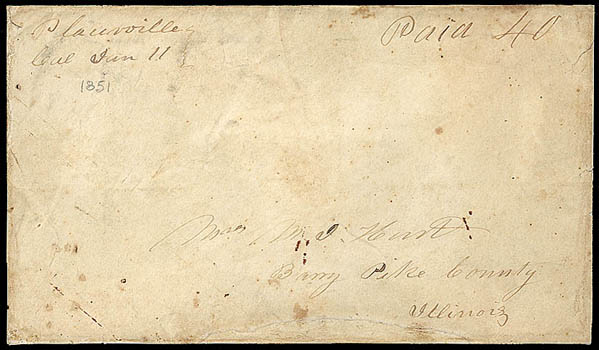 Placerville
Cal Jun 11
1851
Paid 40
Mrs M. I. Hart
Barry Pike County
Illinois